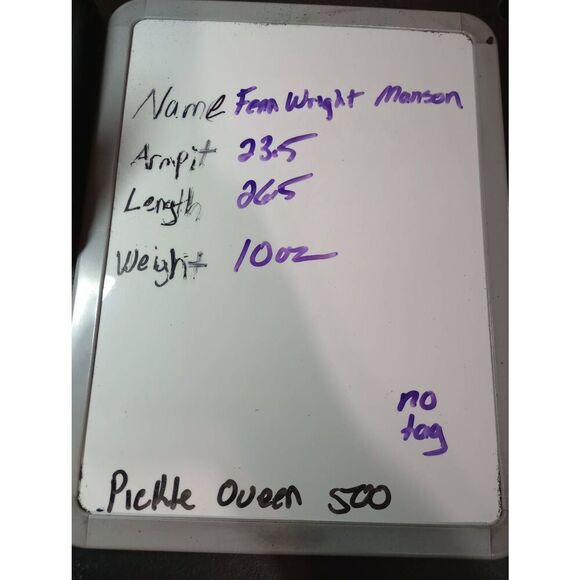 Name Fenn Wright Manson
Armpit 23.5
Length 26.5
Weight 10oz
no
tag
Pickle Queen 500